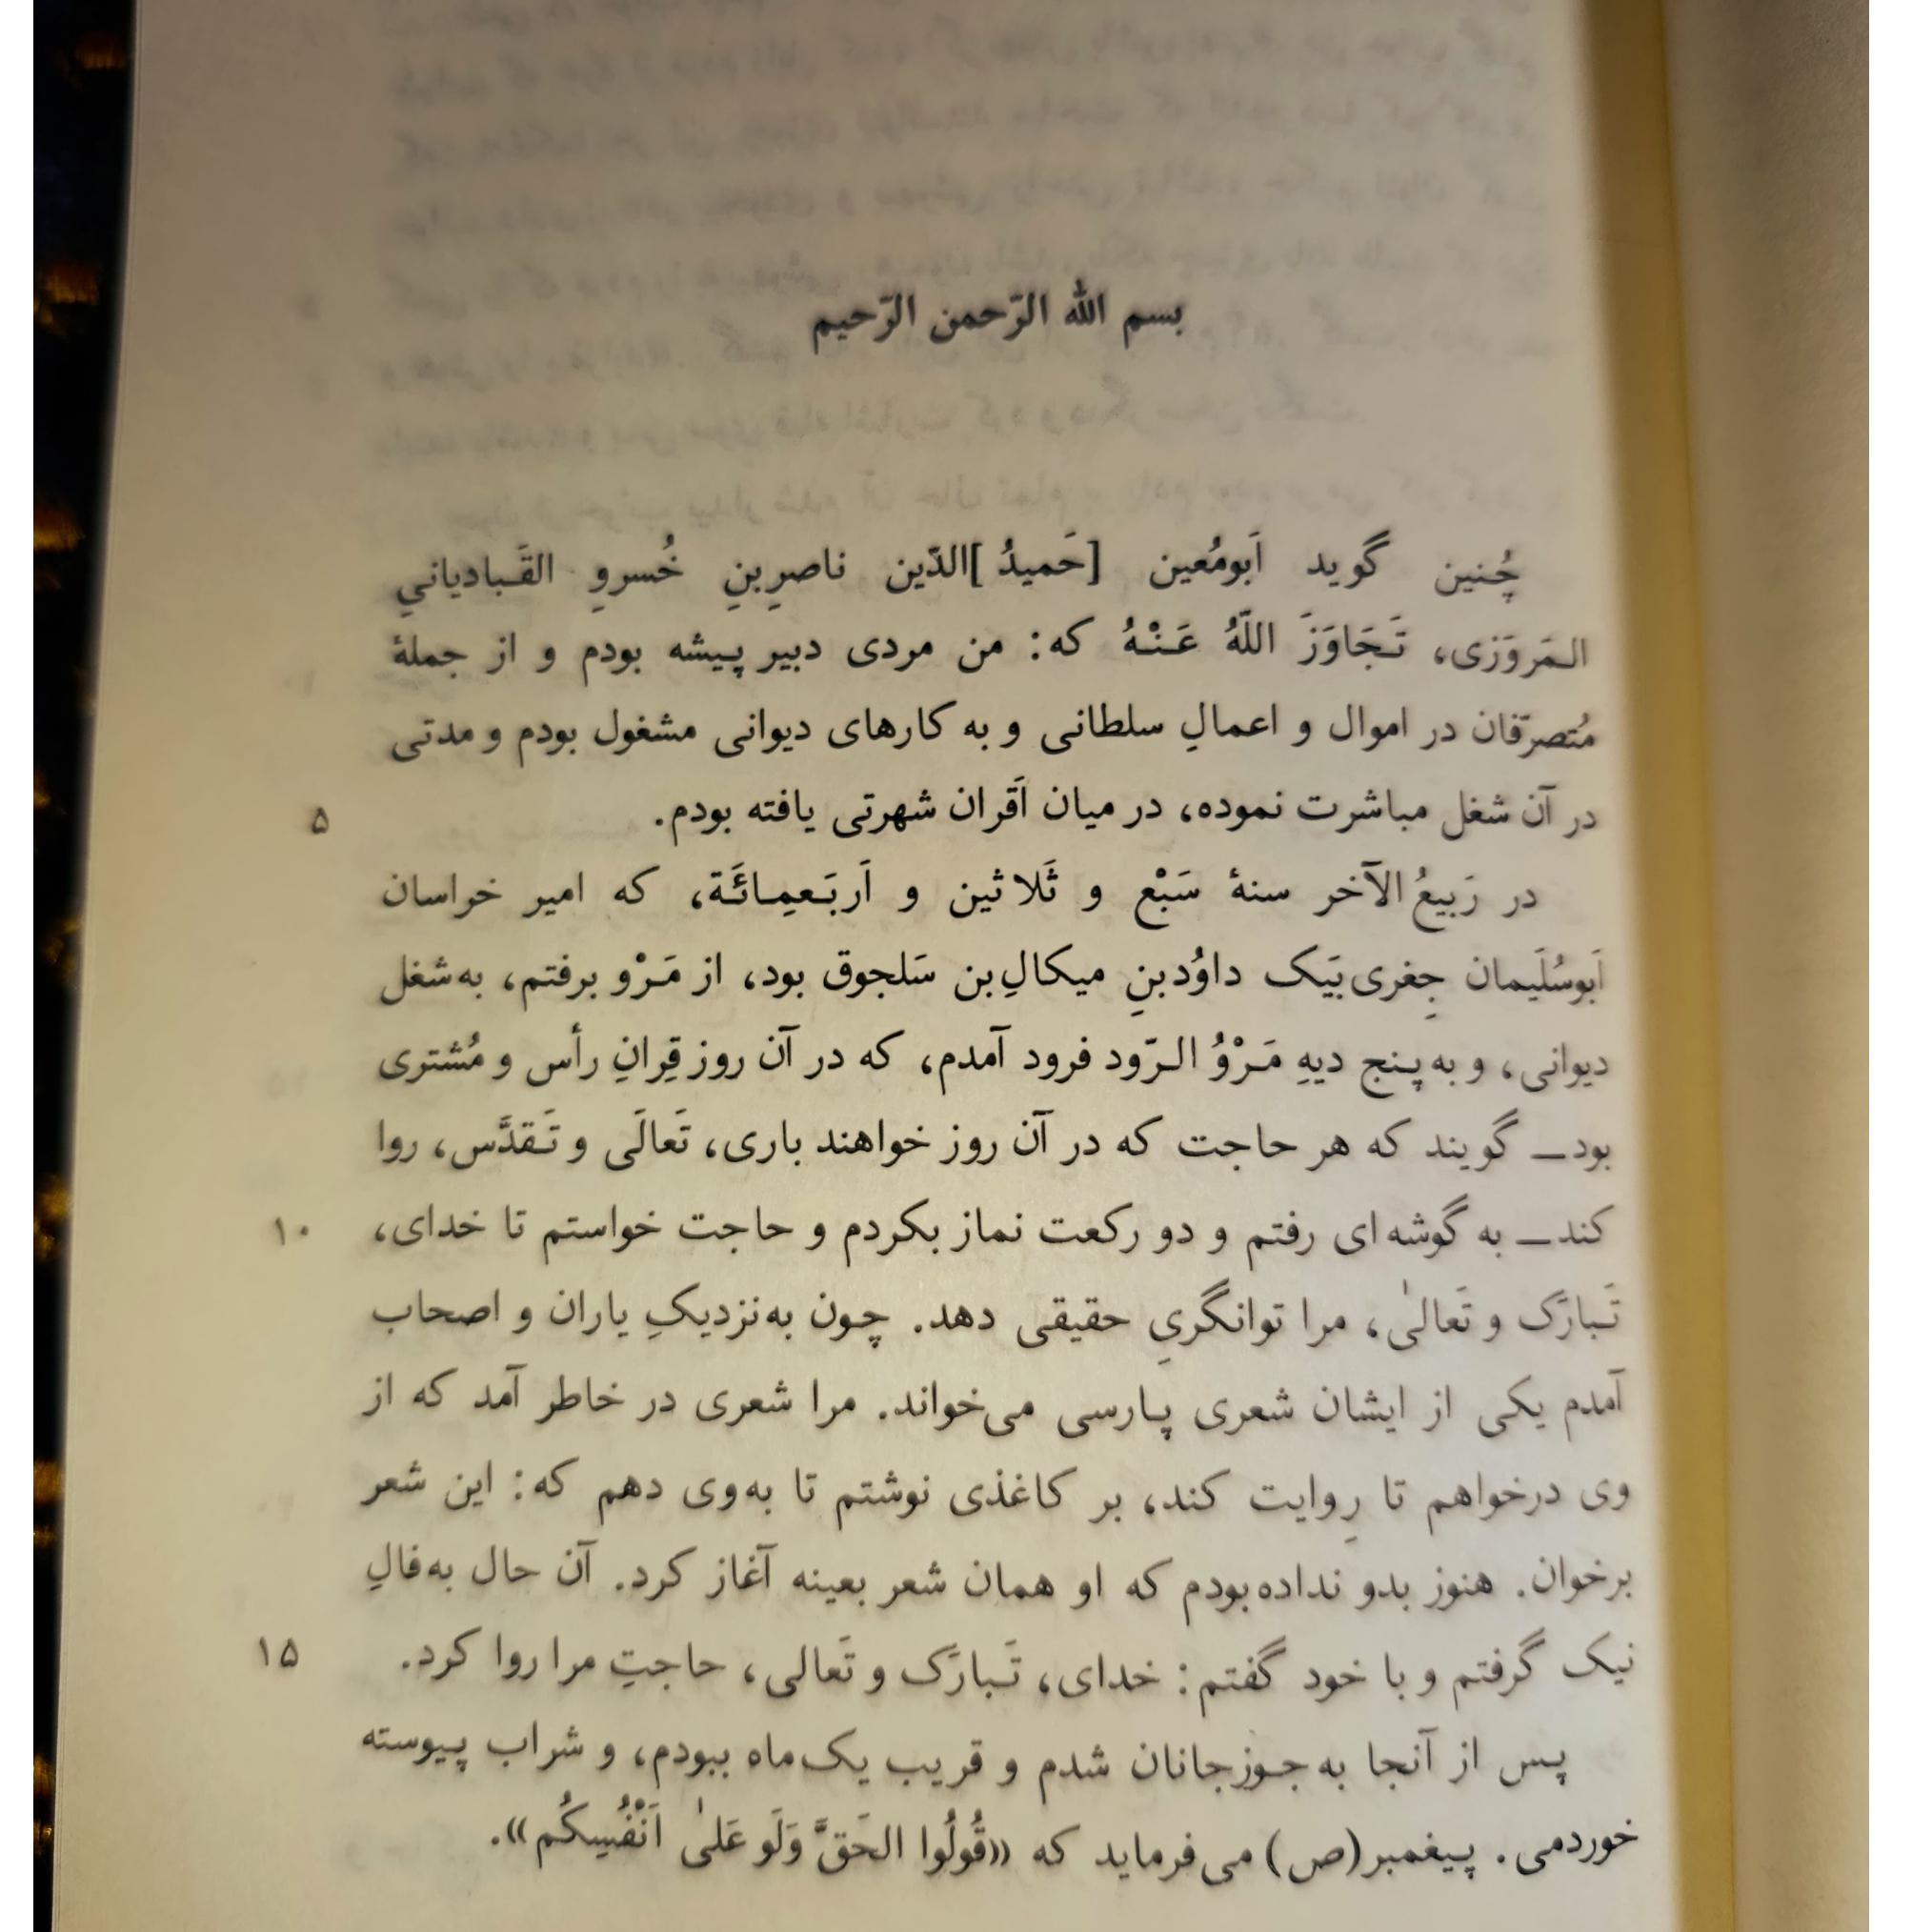 بسم الله الرّحمن الرّحیم
چُنین گوید اَبومُعین [حَمیدُ ]الدّین ناصرِبنِ خُسروِ القَبادیانیِ
المَروَزی، تَجَاوَزَ اللّهُ عَنْهُ که: من مردی دبیر پیشه بودم و از جملهٔ
مُتصرّفان در اموال و اعمالِ سلطانی و به کارهای دیوانی مشغول بودم و مدتی
در آن شغل مباشرت نموده، در میان اَقران شهرتی یافته بودم.
۵
در رَبیعُ الآخر سنهٔ سَبْع و ثَلاثین و اَربَعمِائَة، که امیر خراسان
اَبوسُلَیمان جِغری بَیَک داوُد بنِ میکالِ بن سَلجوق بود، از مَرْو برفتم، به شغل
دیوانی، و به پنج دیهِ مَرْوُ الرّود فرود آمدم، که در آن روز قِرانِ رأس و مُشتری
بود_ گویند که هر حاجت که در آن روز خواهند باری، تَعالَی و تَقدَّس، روا
کند_ به گوشه ای رفتم و دو رکعت نماز بکردم و حاجت خواستم تا خدای،
۱۰
تَبارَک و تَعالیٰ، مرا توانگریِ حقیقی دهد. چون به نزدیکِ یاران و اصحاب
آمدم یکی از ایشان شعری پارسی می‌خواند. مرا شعری در خاطر آمد که از
وی درخواهم تا رِوایت کند، بر کاغذی نوشتم تا به وی دهم که: این شعر
برخوان. هنوز بدو نداده بودم که او همان شعر بعینه آغاز کرد. آن حال به فالِ
نیک گرفتم و با خود گفتم: خدای، تَبارَک و تَعالی، حاجتِ مرا روا کرد.
۱۵
پس از آنجا به جوزجانان شدم و قریب یک ماه ببودم، و شراب پیوسته
خوردمی. پیغمبر(ص) می‌فرماید که «قُولُوا الحَقَّ وَلَو عَلیٰ اَنْفُسِکُم».